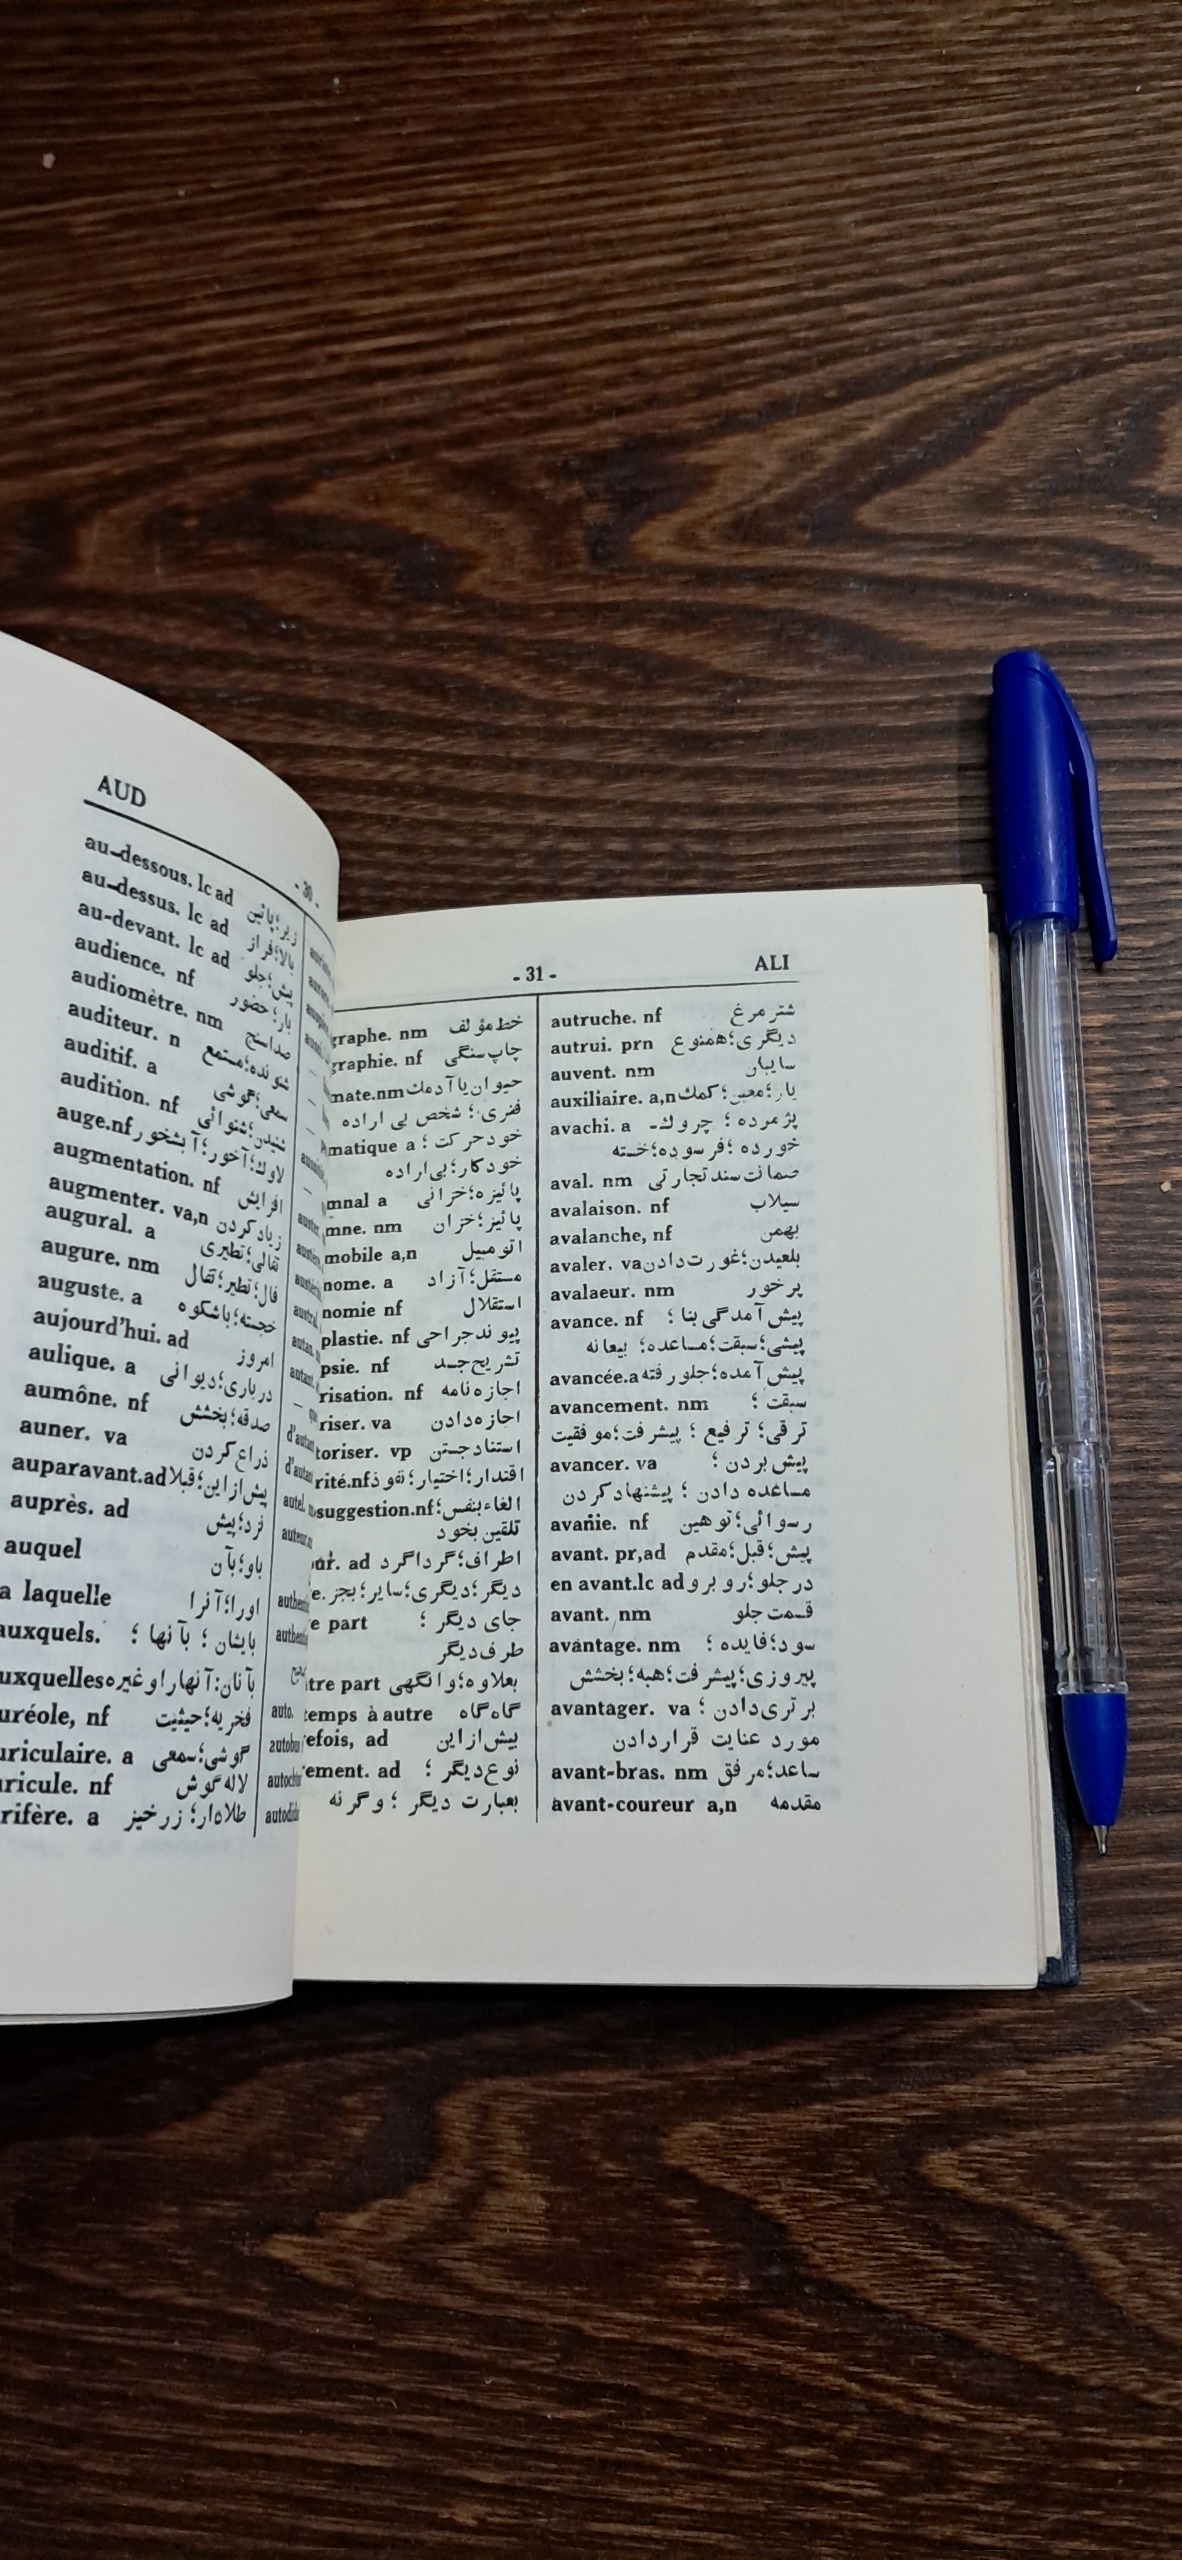 AUD
- 30 -
au-dessous. lc ad زیر؛پائین
au-dessus. lc ad بالا؛فراز
au-devant. lc ad پیش؛جلو
audience. nf بار؛حضور
audiomètre. nm صداسنج
auditeur. n شونده؛مستمع
auditif. a سمعی؛گوشی
audition. nf شنیدن؛شنوائی
auge.nf لاوك؛آخور؛آبشخور
augmentation. nf افزایش
augmenter. va,n زیادکردن
augural. a تفالی؛تطیری
augure. nm فال؛تطیر؛تفال
auguste. a خجسته؛باشکوه
aujourd'hui. ad امروز
aulique. a درباری؛دیوانی
aumône. nf صدقه؛بخشش
auner. va ذراع کردن
auparavant.ad پیش‌ازاین؛قبلا
auprès. ad نزد؛پیش
auquel باو؛بآن
a laquelle اورا؛آنرا
auxquels. بایشان ؛ بآنها ؛
uxquelles بآنان:آنهاراوغیره
uréole, nf فخریه؛حیثیت
uriculaire. a گوشی؛سمعی
ricule. nf لاله‌گوش
rifère. a طلادار؛ زرخیز
auto.
- 31 -
ALI
graphe. nm خط‌مؤلف
graphie. nf چاپ‌سنگی
mate.nm حیوان‌یاآدمك
فنری؛ شخص بی اراده
matique a خودحرکت ؛
خودکار؛بی‌اراده
mnal a پائیزه؛خزانی
mne. nm پائیز؛خزان
mobile a,n اتومبیل
nome. a مستقل؛آزاد
nomie nf استقلال
plastie. nf پیوندجراحی
psie. nf تشریح‌جسد
risation. nf اجازه‌نامه
riser. va اجازه‌دادن
toriser. vp استنادجستن
rité.nf اقتدار؛اختیار؛نفوذ
suggestion.nf الغاءبنفس؛
تلقین‌بخود
ur. ad اطراف؛گرداگرد
e. دیگر؛دیگری؛سایر؛بجز
e part جای دیگر ؛
طرف‌دیگر
tre part بعلاوه؛وانگهی
temps à autre گاه‌گاه
efois, ad پیش‌ازاین
ement. ad نوع‌دیگر ؛
بعبارت دیگر ؛ وگرنه
autruche. nf شترمرغ
autrui. prn دیگری؛همنوع
auvent. nm سایبان
auxiliaire. a,n یار؛معین؛کمك
avachi. a پژمرده ؛ چروك-
خورده ؛فرسوده؛خسته
aval. nm ضمانت‌سندتجارتی
avalaison. nf سیلاب
avalanche, nf بهمن
avaler. va بلعیدن؛غورت‌دادن
avalaeur. nm پرخور
avance. nf پیش‌آمدگی‌بنا ؛
پیشی؛سبقت؛مساعده؛ بیعانه
avancée.a پیش‌آمده؛جلورفته
avancement. nm سبقت ؛
ترقی؛ ترفیع ؛ پیشرفت؛موفقیت
avancer. va پیش‌بردن ؛
مساعده دادن ؛ پیشنهادکردن
avanie. nf رسوائی؛توهین
avant. pr,ad پیش؛قبل؛مقدم
en avant.lc ad درجلو؛روبرو
avant. nm قسمت جلو
avantage. nm سود؛فایده ؛
پیروزی؛پیشرفت؛هبه؛بخشش
avantager. va برتری‌دادن ؛
مورد عنایت قراردادن
avant-bras. nm ساعد؛مرفق
avant-coureur a,n مقدمه